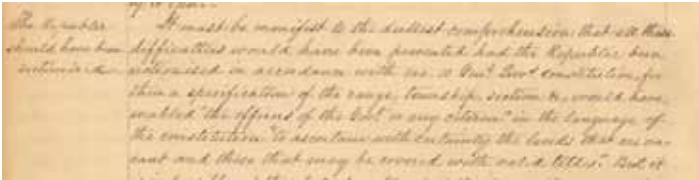 The Republic
should have been
sectionized.
It must be manifest to the dullest comprehension that all these
difficulties would have been prevented had the Republic been
sectionized in accordance with the Gen.l Gov.t constitution, for
then a specification of the range, township, section &c, would have
enabled "the officers of the Gov.t or any citizen" in the language of
the constitution "to ascertain with certainty the lands that are va-
cant and those that may be covered with valid titles". But it